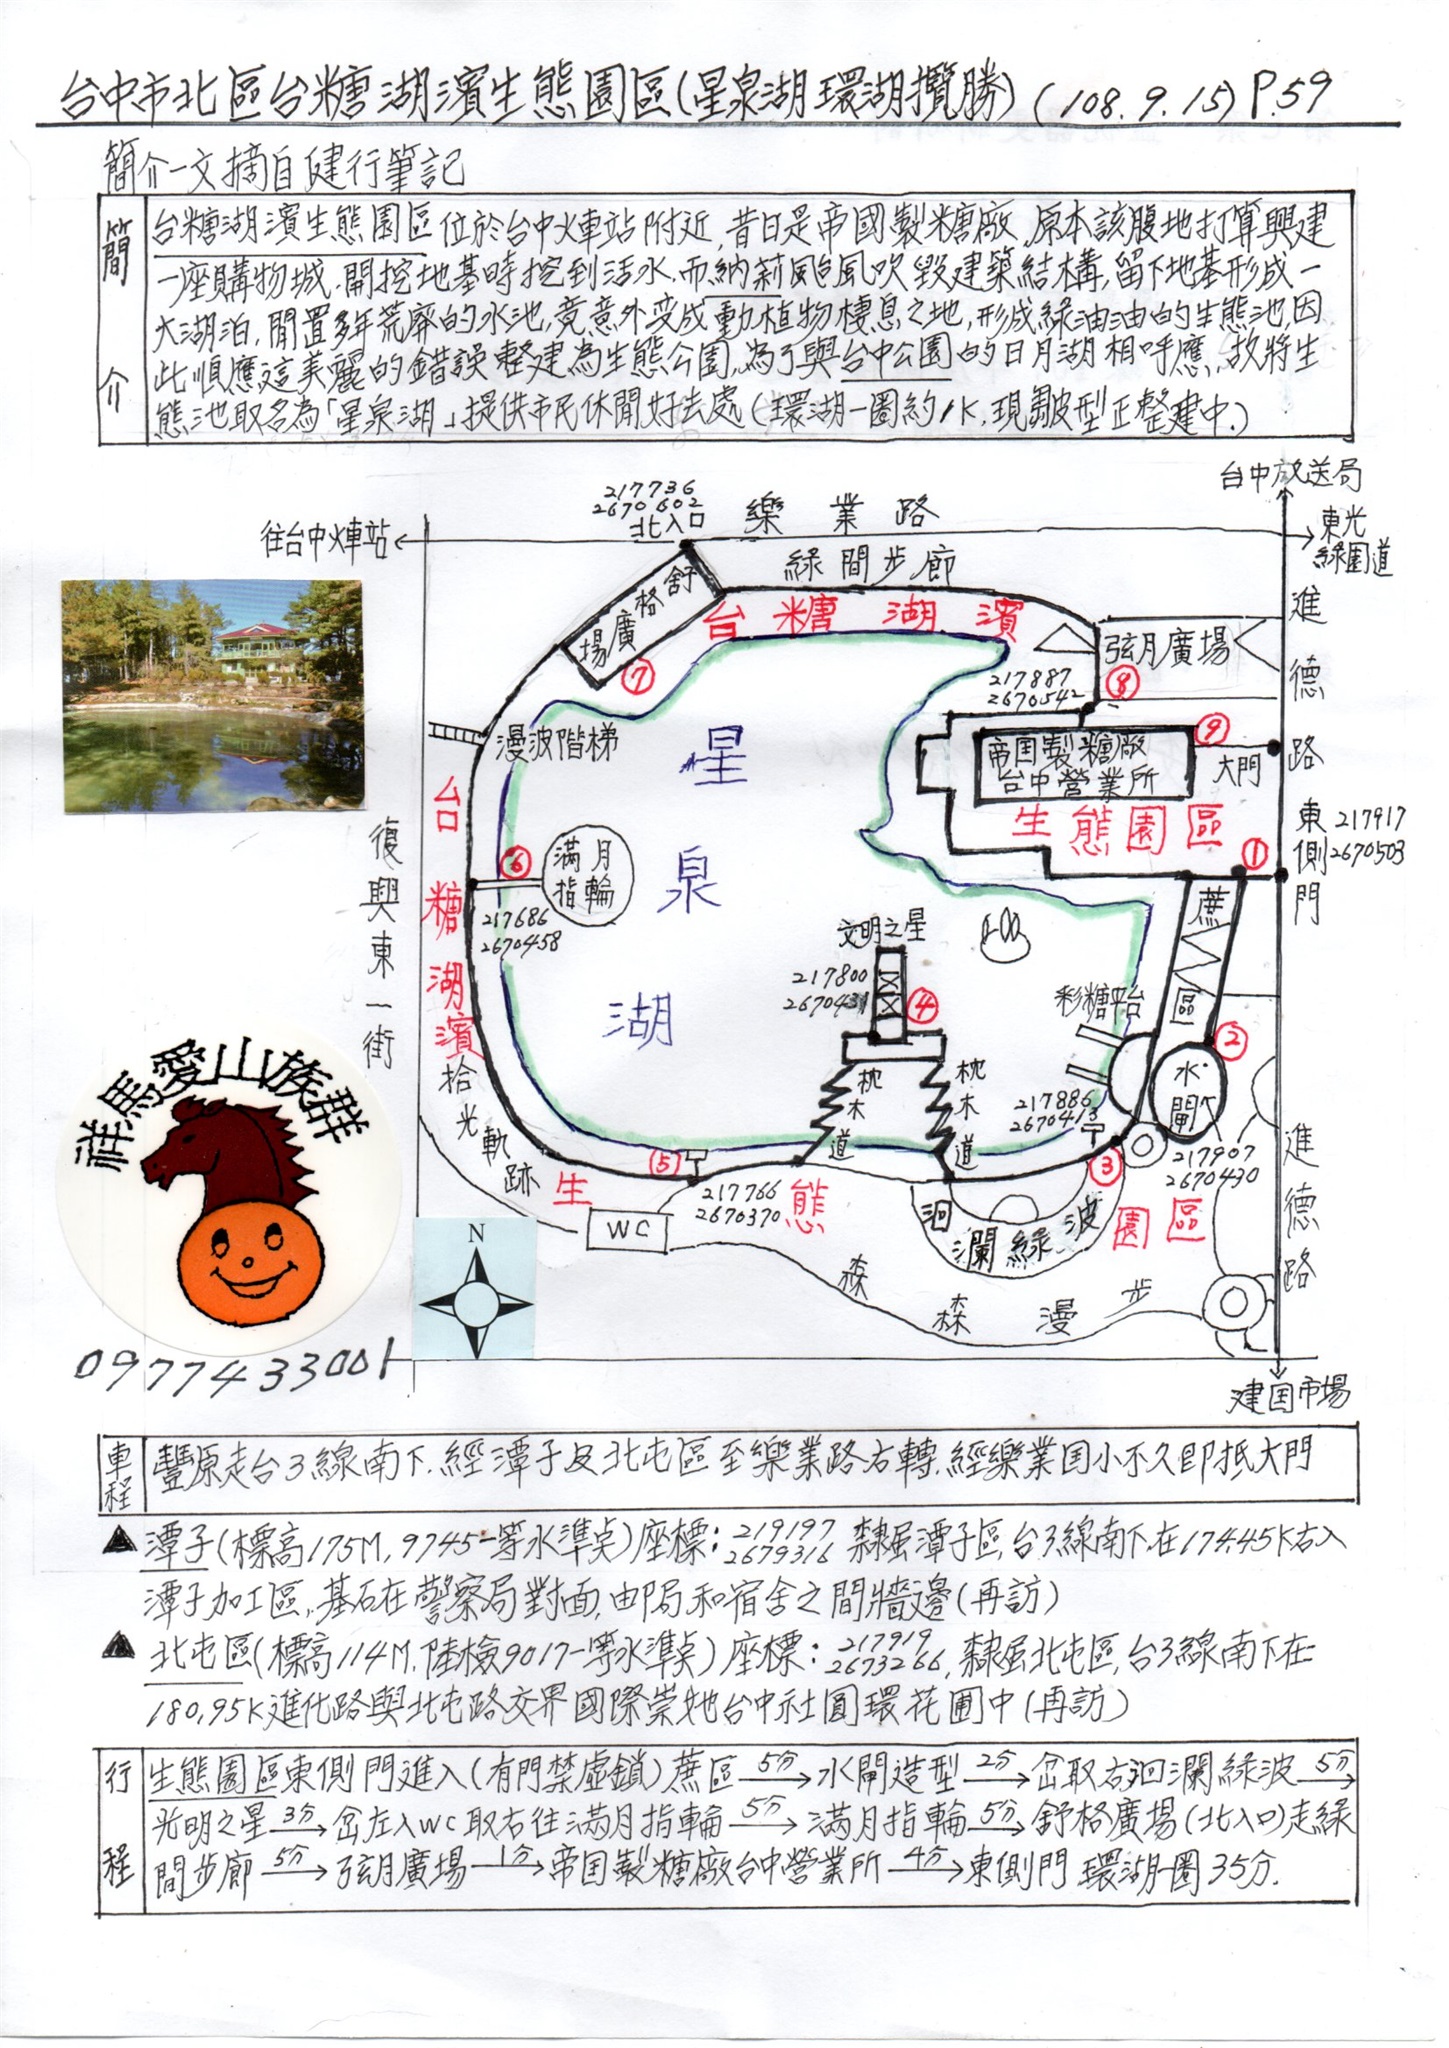 台中市北區台糖湖濱生態園區(星泉湖環湖攬勝) (108.9.15) P.59
簡介一文摘自健行筆記
簡介
台糖湖濱生態園區位於台中火車站附近,昔日是帝國製糖廠,原本該腹地打算興建
一座購物城.開挖地基時挖到活水.而納莉颱風吹毀建築結構,留下地基形成一
大湖泊,閒置多年荒廢的水池,竟意外變成動植物棲息之地,形成綠油油的生態池,因
此順應這美麗的錯誤整建為生態公園,為了與台中公園的日月湖相呼應,故將生
態池取名為「星泉湖」提供市民休閒好去處(環湖一圈約1K,現雛型正整建中.)
台中放送局
217736
2670602
北入口
樂業路
往台中火車站
東光
綠園道
綠間步廊
舒格廣場
⑦
台糖湖濱
弦月廣場
⑧
進德路
217887
2670542
帝国製糖廠
台中營業所
⑨
大門
生態園區
①
東側門
217917
2670503
漫波階梯
星泉湖
台糖湖濱
復興東一街
⑥
滿月
指輪
217686
2670458
文明之星
217800
2670431
④
蔗區
彩糖平台
②
水閘
枕木道
枕木道
217886
2670413
③
217907
2670430
拾光軌跡
⑤
217766
2670370
生態園區
WC
洄瀾綠波
森森漫步
進德路
建国市場
祥馬愛山族群
N
0977433001
車程
豐原走台3線南下.經潭子及北屯區至樂業路右轉.經樂業国小不久即抵大門
▲潭子(標高175M,9745一等水準点)座標:219197 2679316 隸屬潭子區,台3線南下.在174.45K右入
潭子加工區,基石在警察局對面,由郵局和宿舍之間牆邊(再訪)
▲北屯區(標高114M.陸檢9017一等水準点)座標:217919 2673266,隸屬北屯區,台3線南下在
180.95K進化路與北屯路交界國際崇她台中社圓環花圃中(再訪)
行程
生態園區東側門進入(有門禁虛鎖)蔗區 5分→ 水閘造型 2分→ 岔取右洄瀾綠波 5分→
光明之星 3分→ 岔左入WC取右往滿月指輪 5分→ 滿月指輪 5分→ 舒格廣場(北入口)走綠
間步廊 5分→ 弦月廣場 1分→ 帝国製糖廠台中營業所 4分→ 東側門 環湖一圈35分.